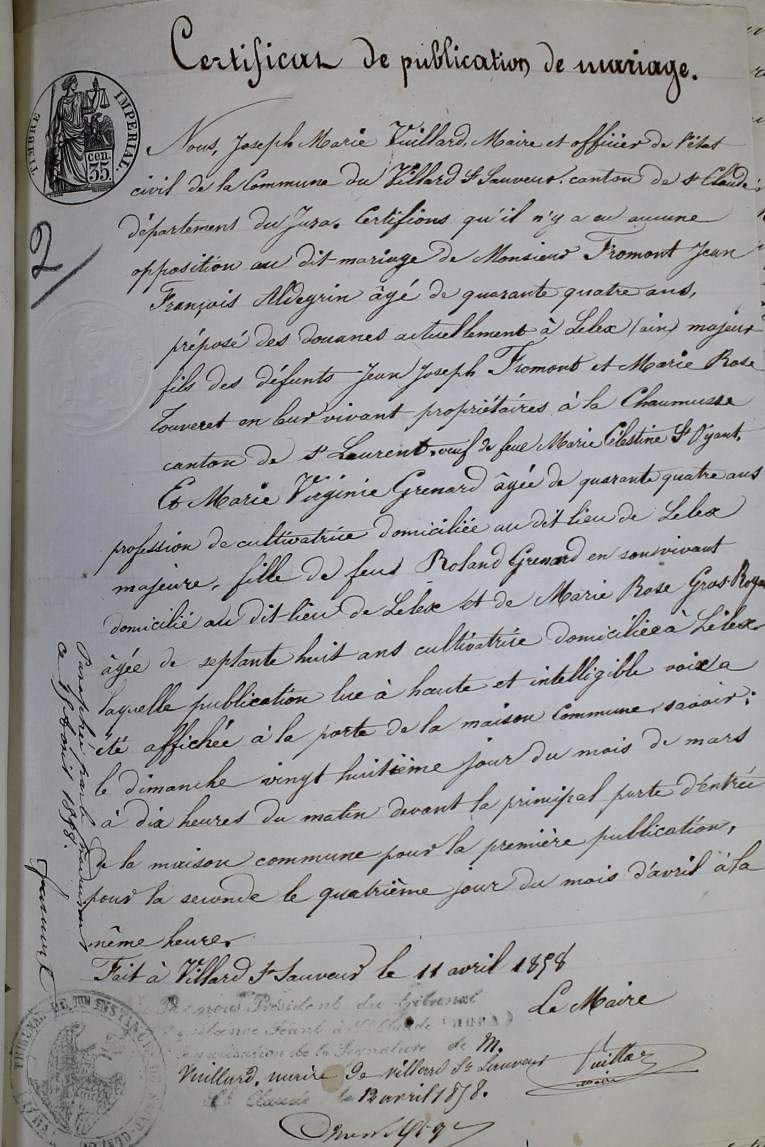 Certificat de publication de mariage.
TIMBRE IMPERIAL.
cen.
35
Nous, Joseph Marie Vuillard, Maire et officier de l'état
civil de la Commune du Villard St Sauveur. canton de St Claude
département du Jura. Certifions qu'il n'y a eu aucune
opposition au dit mariage de Monsieur Fromont Jean
2
François Aldegrin âgé de quarante quatre ans,
préposé des douanes actuellement à Lelex (ain) majeur
fils des défunts Jean Joseph Fromont et Marie Rose
Touveret en leur vivant propriétaires à la Chaumusse
canton de St Laurent. veuf de feue Marie Célestine St Oyant.
Et Marie Virginie Grenard âgée de quarante quatre ans
profession de cultivatrice domiciliée au dit lieu de Lelex
majeure, fille de feus Roland Grenard en son vivant
domicilié au dit lieu de Lelex et de Marie Rose Gros-
âgée de septante huit ans cultivatrice domiciliée à Lelex
laquelle publication lue à haute et intelligible voix a
été affichée à la porte de la maison Commune, savoir:
le dimanche vingt huitième jour du mois de mars
à dix heures du matin devant la principal porte d'entrée
de la maison commune pour la première publication,
pour la seconde le quatrième jour du mois d'avril à la
même heure.
Fait à Villard St Sauveur le 11 avril 1858
Le Maire
Vuillard
maire
Par nous Président du tribunal
instance séant à St Claude (JURA)
légalisation de la Signature de M.
Vuillard, maire de Villard St Sauveur
St Claude le 12 avril 1858.
Paraphé par
ce avril 1858.
TRIBUNAL DE 1ère INSTANCE DE SAINT